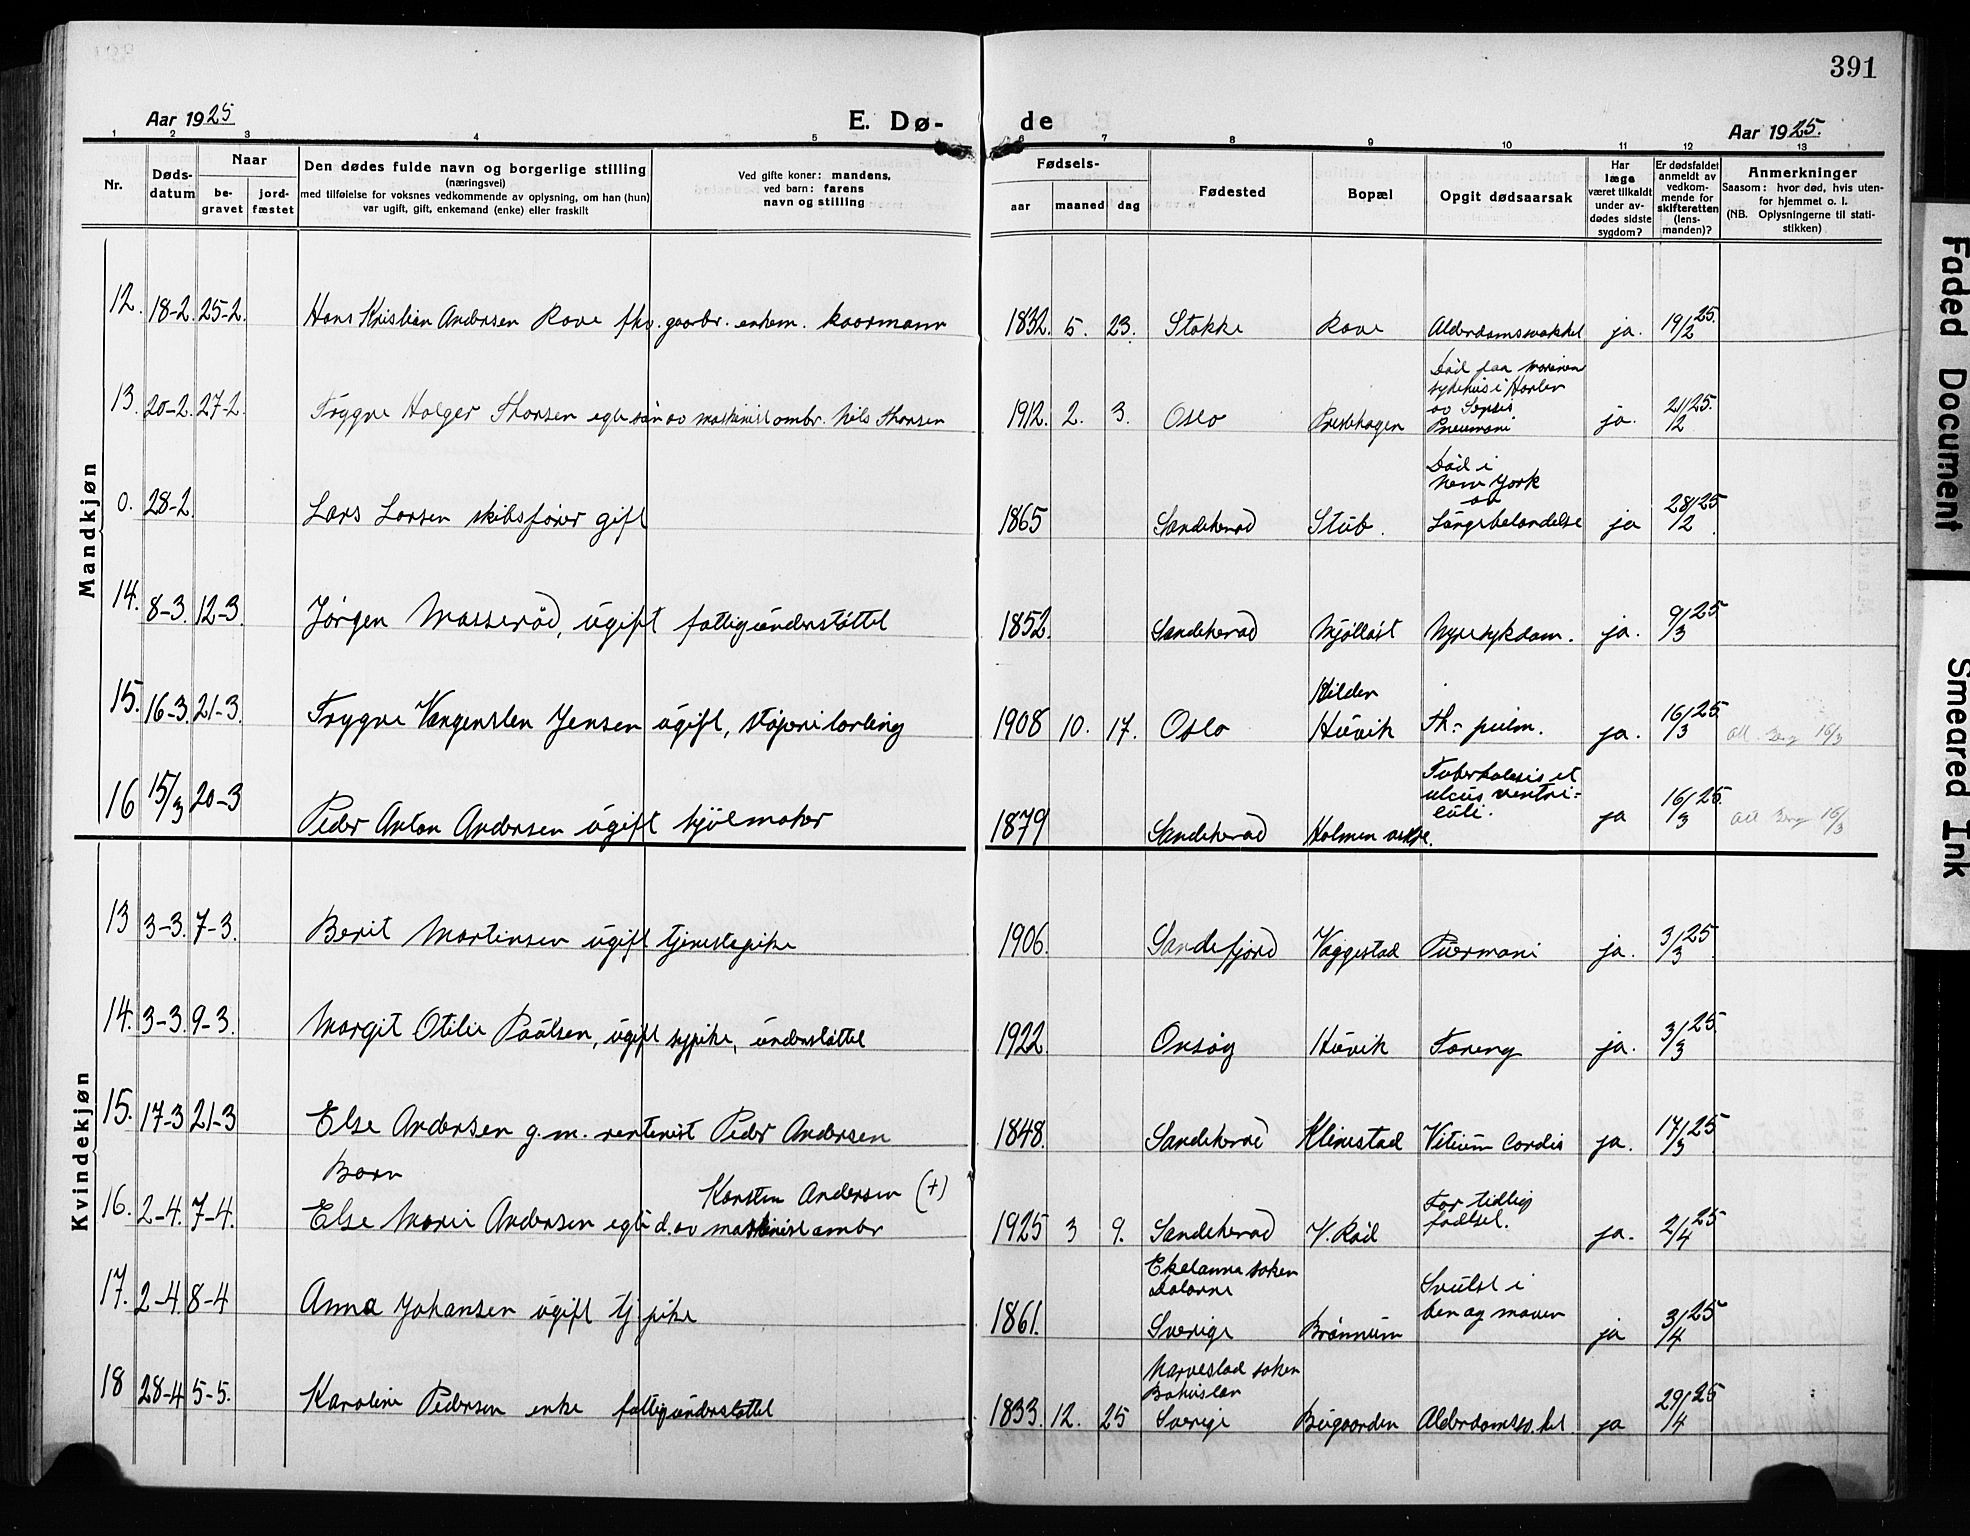 391
Aar 1925
E. Dø-
de
Aar 1925.
1 2 3 4 5 6 7 8 9 10 11 12 13
Nr.
Døds-
datum
Naar
be-
gravet
jord-
fæstet
Den dødes fulde navn og borgerlige stilling
(næringsvei)
med tilføielse for voksnes vedkommende av oplysning, om han (hun)
var ugift, gift, enkemand (enke) eller fraskilt
Ved gifte koner: mandens,
ved barn: farens
navn og stilling
Fødsels-
aar
maaned
dag
Fødested
Bopæl
Opgit dødsaarsak
Har
læge
været tilkaldt
under av-
dødes sidste
sygdom?
Er dødsfaldet
anmeldt av
vedkom-
mende for
skifteretten
(lens-
manden)?
Anmerkninger
Saasom: hvor død, hvis uten-
for hjemmet o. l.
(NB. Oplysningerne til stati-
stikken)
Mandkjøn
12. 18-2. 25-2. Hans Kristian Andersen Rove fhv. gaarbr. enkem. 1832. 5. 23. Stokke Rove Alderdomssvakhet ja. 19/2 25.
Død paa
sykehus i
av Sepsis
13. 20-2. 27-2. Trygve Holger Thorsen egte søn av maskinist ombr. Nils Thorsen 1912. 2. 3. Oslo Prestehagen Pneumoni ja. 21/2 25.
Død i
New York
av
0. 28-2. Lars Larsen skibsfører gift 1865 Sandeherad Stub. ja 28/2 25
14. 8-3. 12-3. Jørgen Masserød, ugift fattigunderstøttet 1852. Sandeherad Nyresykdom. ja. 9/3 25
15. 16-3. 21-3. Trygve Vangensten Jensen ugift, støperilærling 1908 10. 17. Oslo Huvik Tb. pulm. ja. 16/3 25. Att. Berg 16/3
Tuberkulosis et
ulcus ventri-
culi.
16 15/3 20-3 Peder Anton Andersen ugift hjulmaker 1879 Sandeherad Holmen ja 16/3 25. Att Berg 16/3
Kvindekjøn
13 3-3. 7-3. Berit Martinsen ugift tjenestepike 1906. Sandefjord Vaggestad Puermoni ja. 3/3 25.
14. 3-3. 9-3. Margit Otilie Paulsen, ugift sypike, understøttet 1922. Onsøy Huvik Tæring ja. 3/3 25.
15. 17-3. 21-3 Else Andersen g. m. rentenist Peder Andersen 1848. Sandeherad Klinestad Vitium Cordis ja. 17/3 25.
Barn
Karsten Andersen (+)
For tidlig
fødsel.
16. 2-4. 7-4. Else Marie Andersen egte d. av maskinist ombr 1925 3 9. Sandeherad V. Rød ja. 2/4 25
Ekelanna soken
Dalarne
Svulst i
ben og maven
17. 2-4. 8-4 Anna Johansen ugift tj pike 1861. Sverige Brønnum ja 3/4 25
Marvestad soken
Bohuslän
18 28-4 5-5. Karoline Pedersen enke fattigunderstøttet 1833. 12. 25 Sverige Bugaarden Alderdomssv.het. ja 29/4 25
Faded Document
Smeared Ink